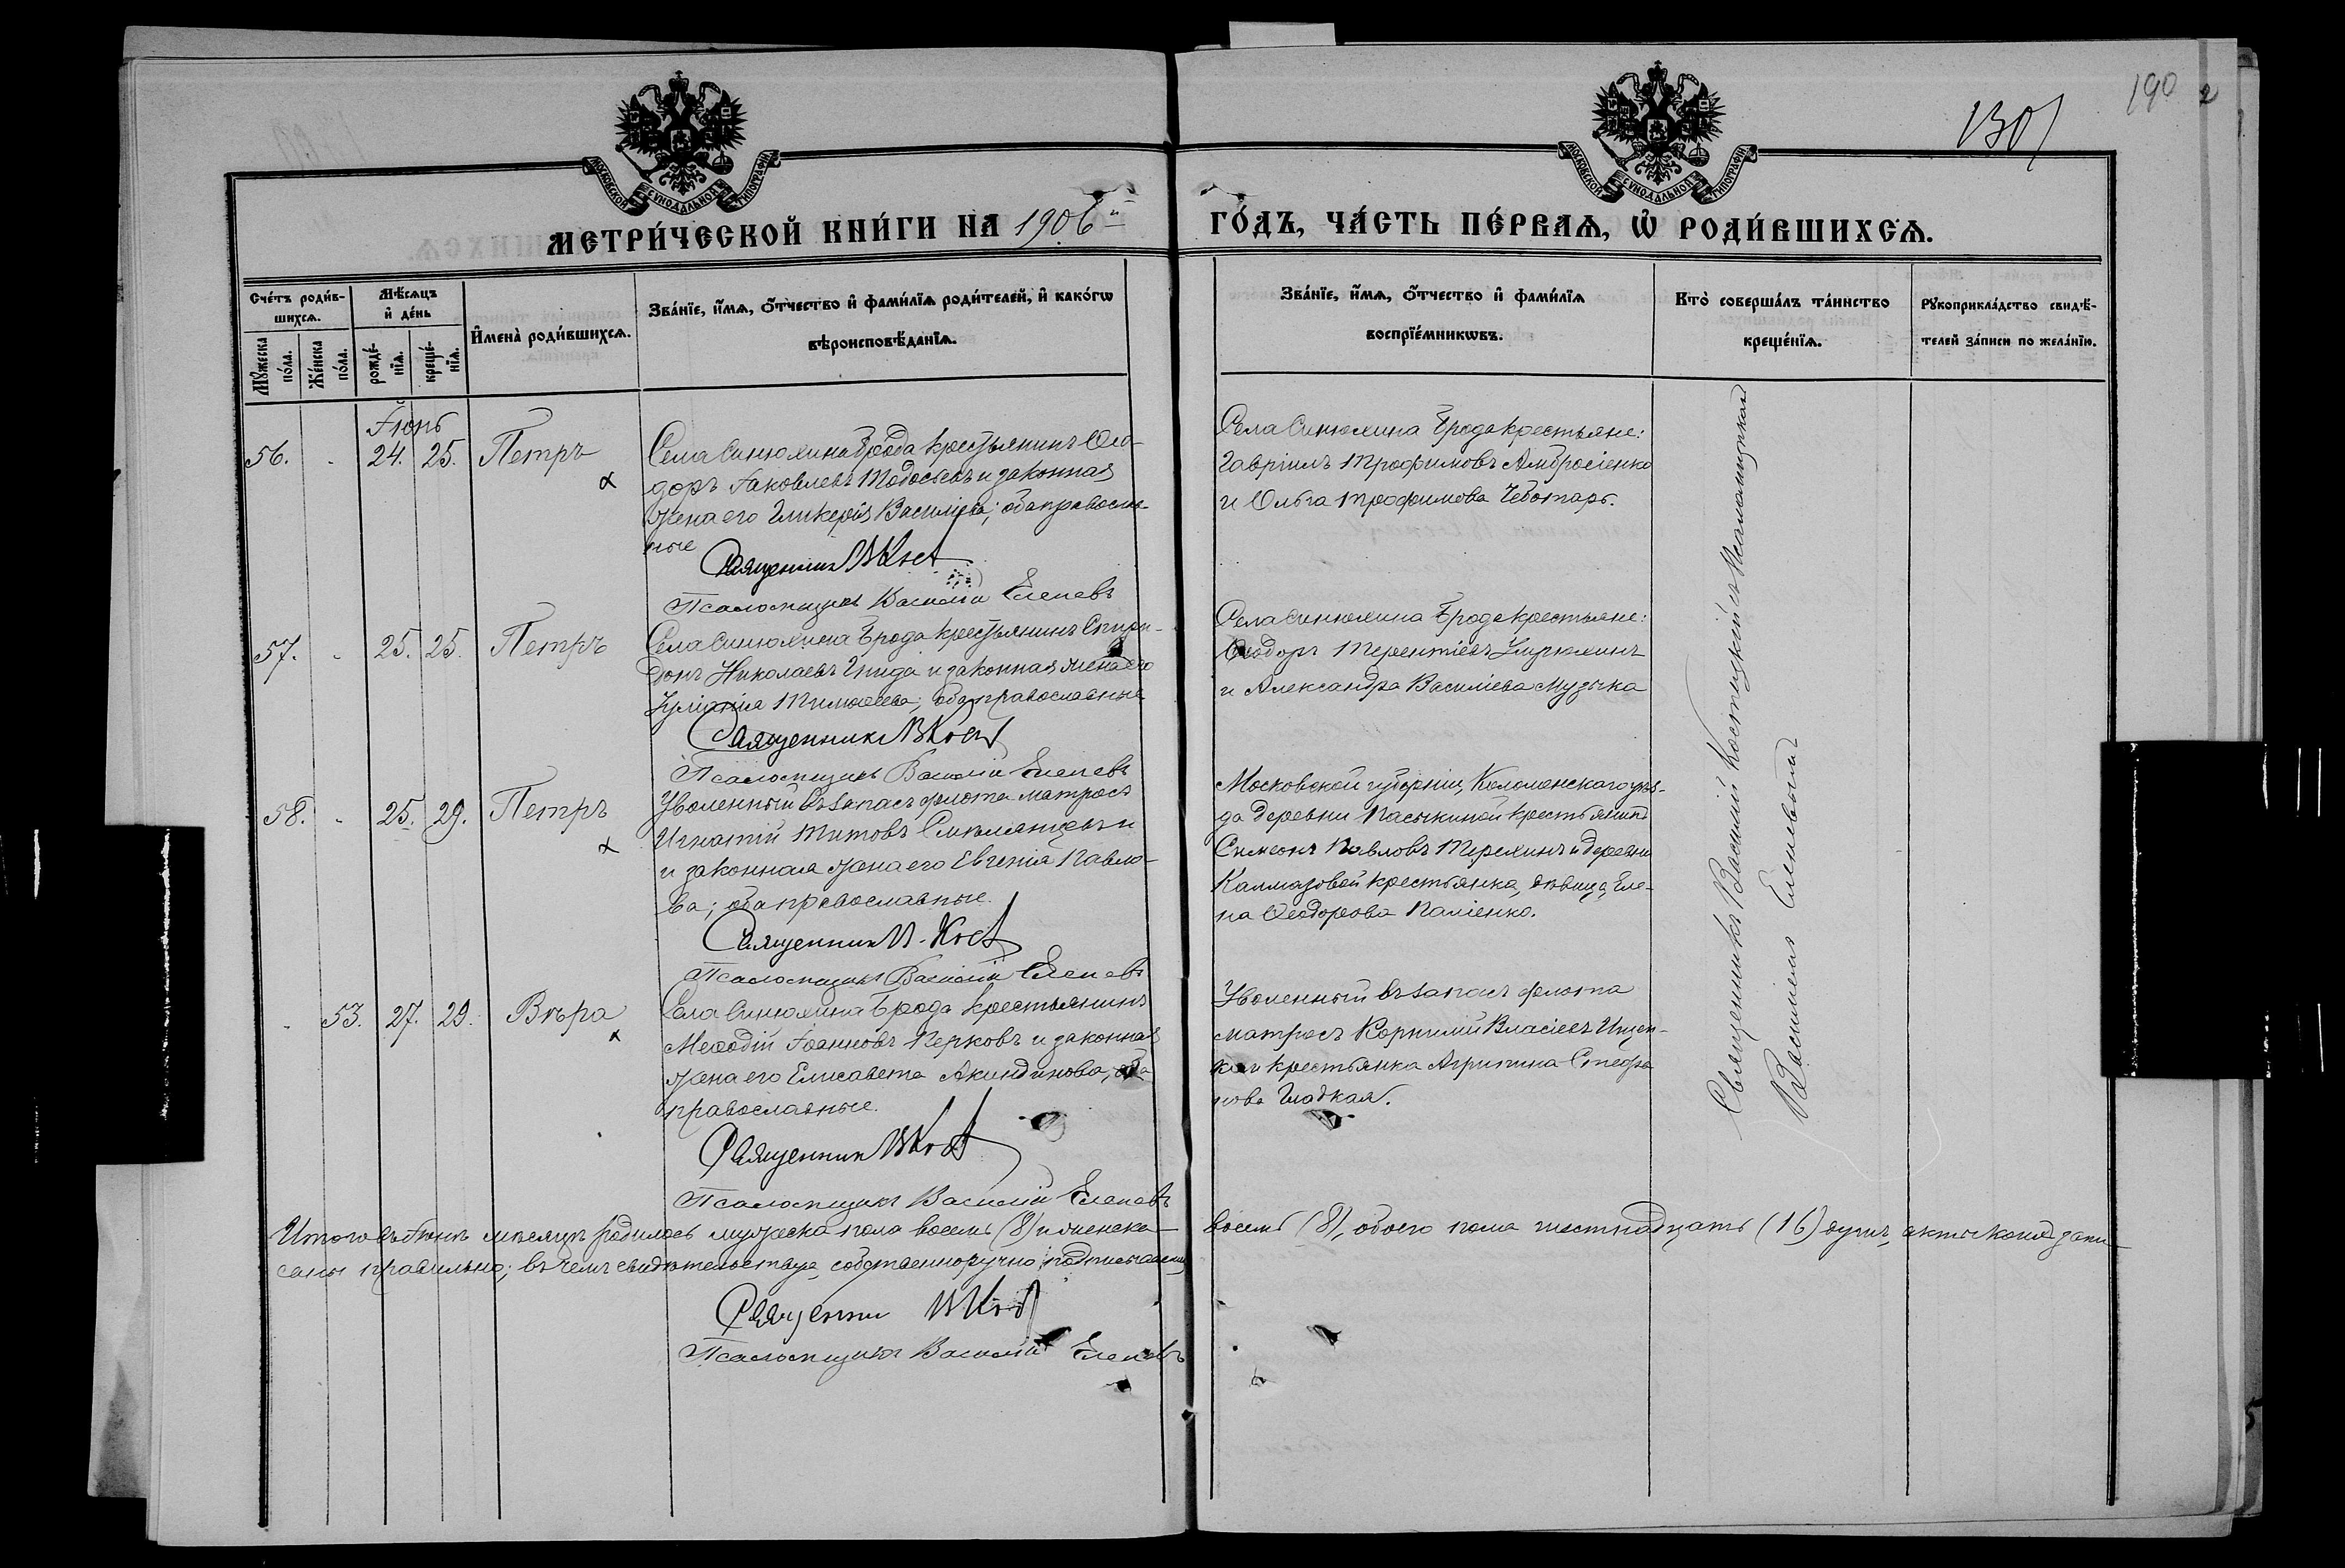 190
130
МОСКОВСКОЙ СУНОДАЛЬНОЙ ТИПОГРАФІИ
МОСКОВСКОЙ СУНОДАЛЬНОЙ ТИПОГРАФІИ
МЕТРИ́ЧЕСКОЙ КНИ́ГИ НА 1906й ГО́ДЪ, ЧА́СТЬ ПЕ́РВАѦ, Ѿ РОДИ́ВШИХСѦ.
Сче́тъ роди́в-
шихсѧ.
Мꙋжеска по́ла.
Же́нска по́ла.
Мѣ́сѧцъ
и҆ де́нь
рожде́-
нїѧ.
креще́-
нїѧ.
И҆мена̀ роди́вшихсѧ.
Зва́нїе, и҆́мѧ, ѻ҆́тчество и҆ фами́лїѧ роди́телей, и҆ како́гѡ
вѣроисповѣ́данїѧ.
Зва́нїе, и҆́мѧ, ѻ҆́тчество и҆ фами́лїѧ
воспрїе́мникѡвъ.
Кто̀ соверша́лъ та́инство
креще́нїѧ.
Рꙋкоприкла́дство свидѣ́-
телей за́писи по жела́нїю.
Іюнь
56. 24. 25. Петръ
Села Синюхина Брода крестьянинъ Ѳео-
доръ Іаковлевъ Тодосьевъ и законная
жена его Гликерія Василіева; оба православ-
ные
Священник В Кост
Псаломщикъ Василій Еленевъ
Села Синюхина Брода крестьяне:
Гавріилъ Трофимовъ Амбросіенко
и Ольга Трофимова Чеботарь.
57. 25. 25. Петръ
Села Синюхина Брода крестьянинъ Спири-
донъ Николаевъ Гнида и законная жена его
Іуліанія Тимоѳеева; оба православные
Священник В Кост
Псаломщикъ Василій Еленевъ
Села Синюхина Брода крестьяне:
Ѳеодоръ Терентіевъ
и Александра Василіева Музыка
58. 25. 29. Петръ
Уволенный въ запасъ флота матросъ
Игнатій Титовъ
и законная жена его Евгенія Павло-
ва; оба православные.
Священник В. Кост
Псаломщикъ Василій Еленевъ
Московской губерніи, Коломенскаго уѣз-
да деревни Пасыкиной крестьянинъ
Симеонъ Павловъ Терехинъ и деревни
Калмазовой крестьянка, дѣвица, Еле-
на Ѳеодорова Паліенко.
53. 27. 29. Вѣра
Села Синюхина Брода крестьянинъ
Меѳодій Іоанновъ Перковъ и законная
жена его Елисавета Акиндинова, оба
православные.
Священник В Кост
Псаломщикъ Василій Еленевъ
Уволенный въ запасъ флота
матросъ Корнилій Власіевъ Ищен-
ко и крестьянка Агрипина Стефа
нова Гладкая.
Священникъ Василій Костецкій съ Псаломщикомъ
Василіемъ Еленевымъ
Итого въ Іюнѣ мѣсяцѣ родилось мужеска пола восемь (8) и женска восемь (8), обоего пола шестнадцать (16) душъ, акты коихъ запи-
саны правильно; въ чемъ свидѣтельствуя собственноручно подписаемъ
Священник В Кост
Псаломщикъ Василій Еленевъ